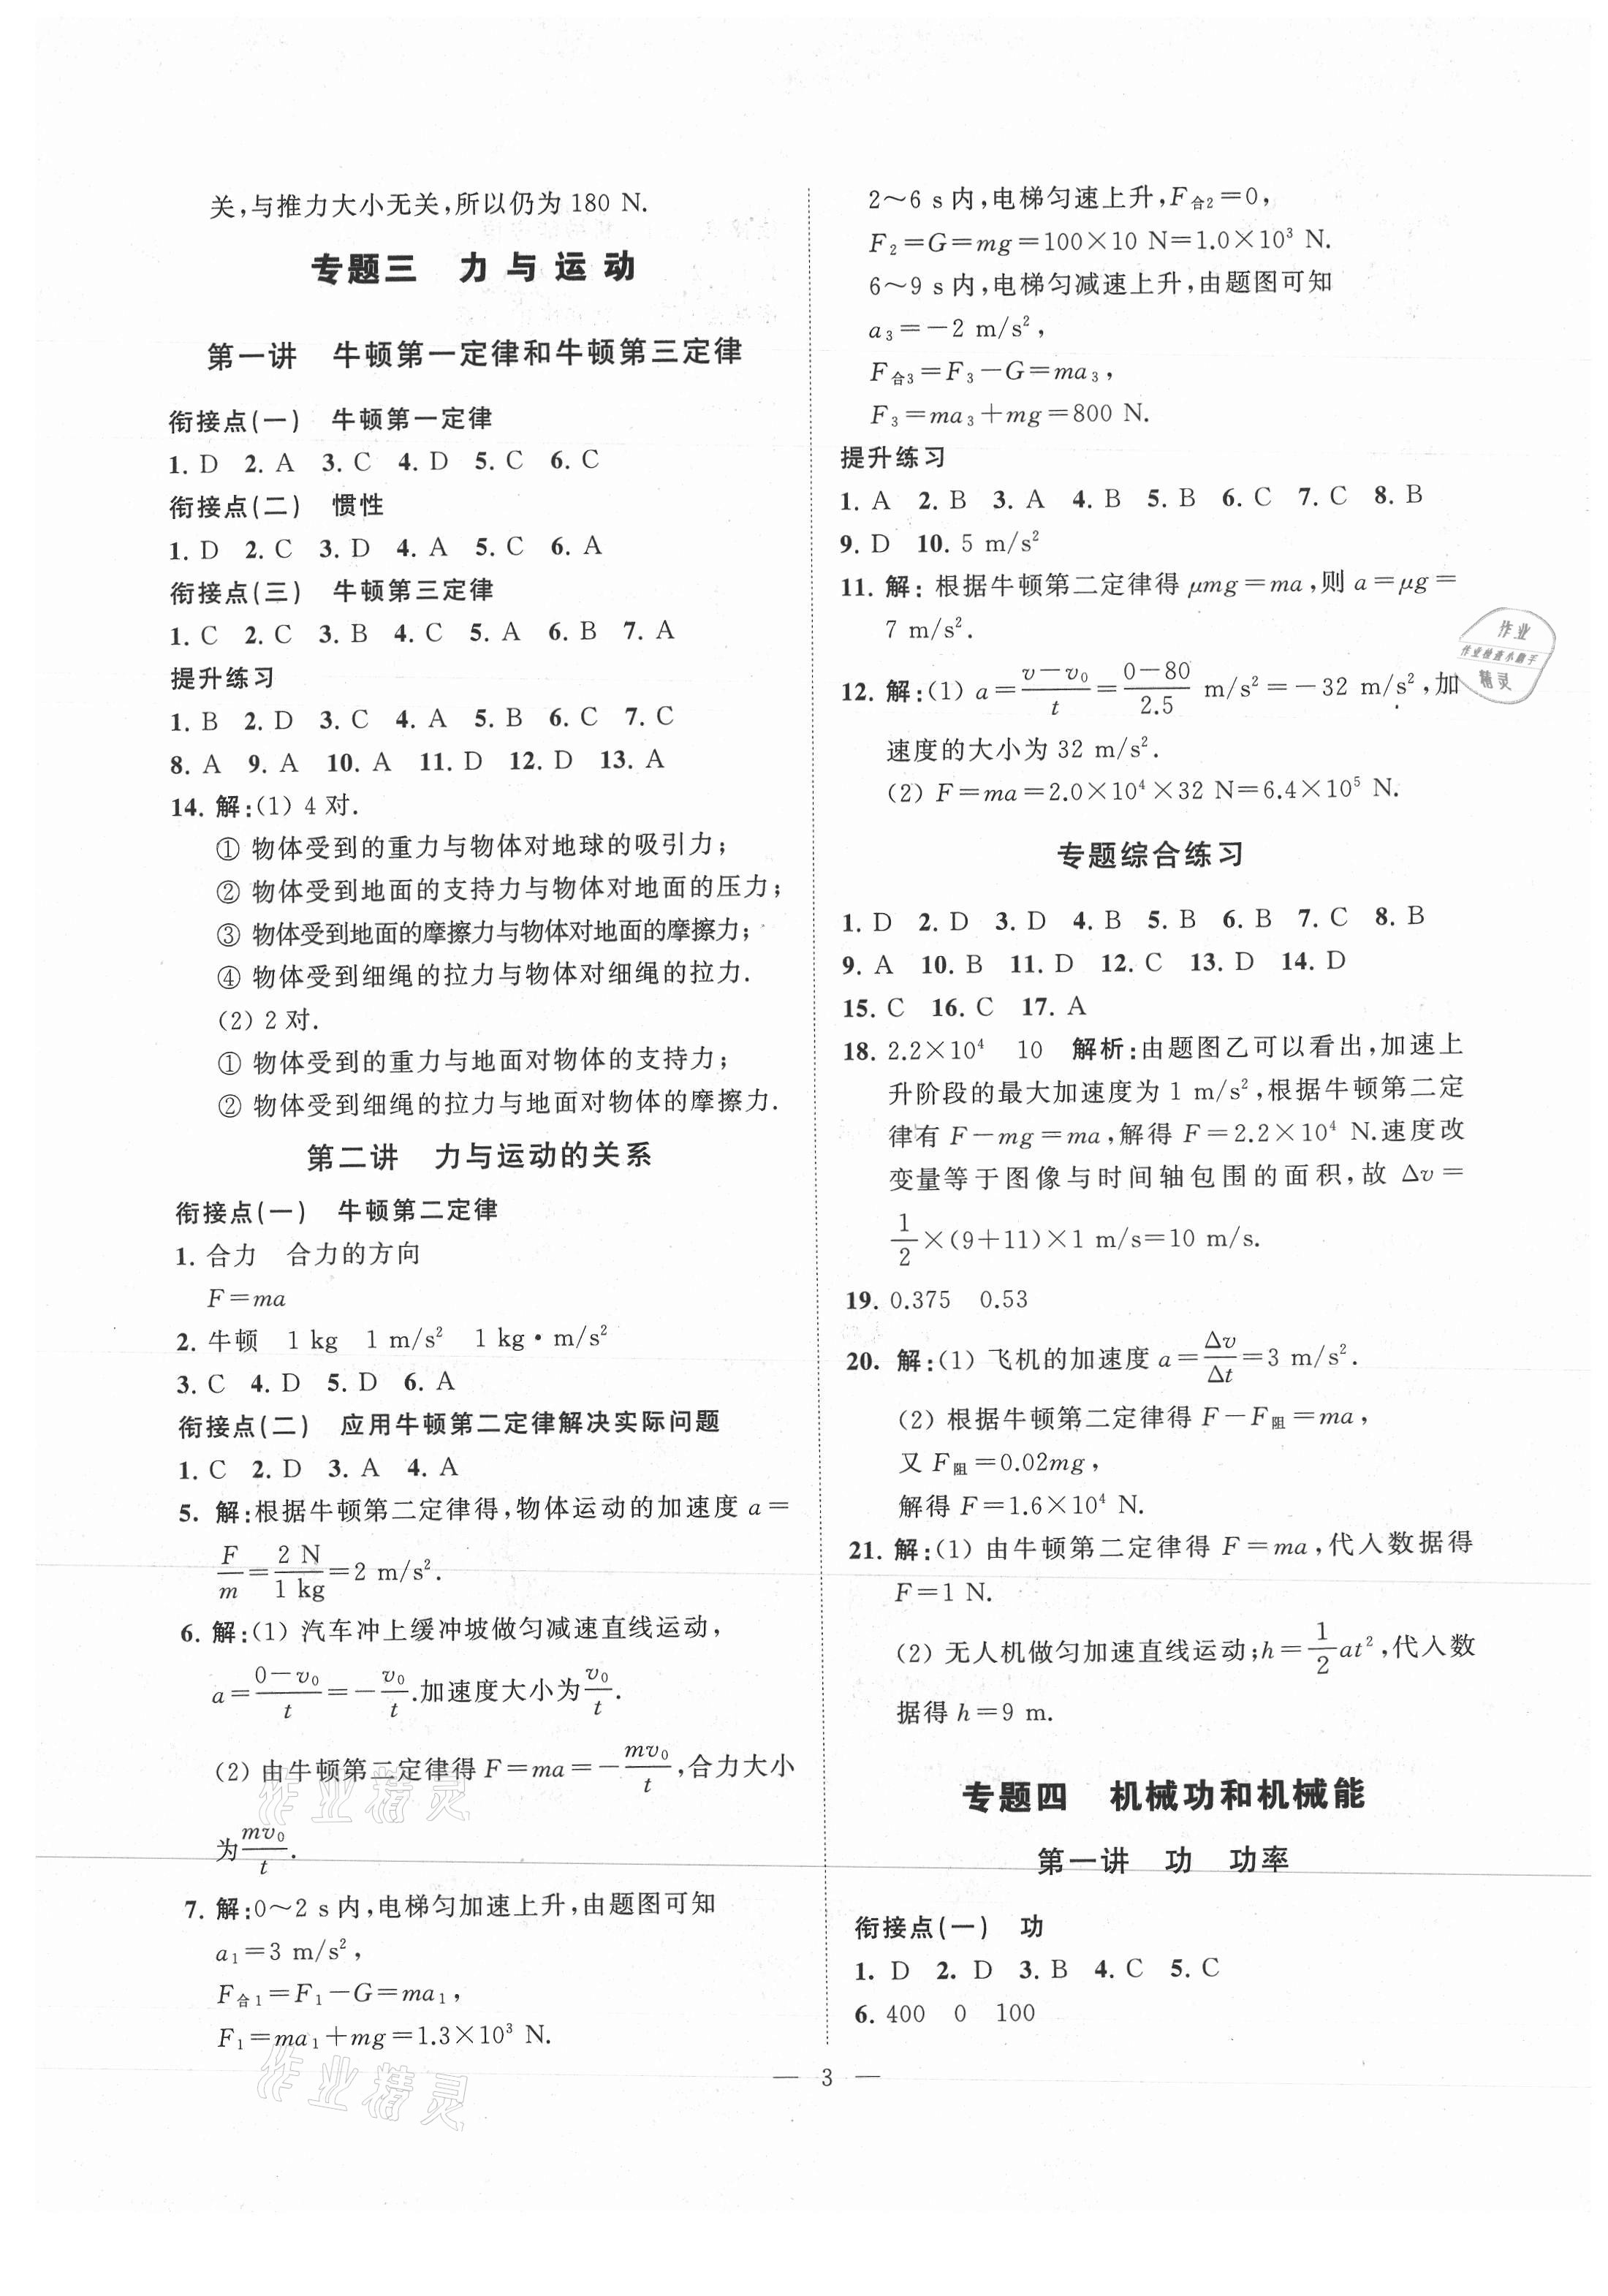 关,与推力大小无关,所以仍为 180 N.
专题三 力与运动
第一讲 牛顿第一定律和牛顿第三定律
衔接点(一) 牛顿第一定律
1. D 2. A 3. C 4. D 5. C 6. C
衔接点(二) 惯性
1. D 2. C 3. D 4. A 5. C 6. A
衔接点(三) 牛顿第三定律
1. C 2. C 3. B 4. C 5. A 6. B 7. A
提升练习
1. B 2. D 3. C 4. A 5. B 6. C 7. C
8. A 9. A 10. A 11. D 12. D 13. A
14. 解:(1) 4 对.
① 物体受到的重力与物体对地球的吸引力;
② 物体受到地面的支持力与物体对地面的压力;
③ 物体受到地面的摩擦力与物体对地面的摩擦力;
④ 物体受到细绳的拉力与物体对细绳的拉力.
(2) 2 对.
① 物体受到的重力与地面对物体的支持力;
② 物体受到细绳的拉力与地面对物体的摩擦力.
第二讲 力与运动的关系
衔接点(一) 牛顿第二定律
1. 合力 合力的方向
F=ma
2. 牛顿 1 kg 1 m/s² 1 kg·m/s²
3. C 4. D 5. D 6. A
衔接点(二) 应用牛顿第二定律解决实际问题
1. C 2. D 3. A 4. A
5. 解:根据牛顿第二定律得,物体运动的加速度 a=
F/m=2 N/1 kg=2 m/s².
6. 解:(1) 汽车冲上缓冲坡做匀减速直线运动,
a=(0-v₀)/t=-v₀/t.加速度大小为v₀/t.
(2) 由牛顿第二定律得 F=ma=-mv₀/t,合力大小
为mv₀/t.
7. 解:0～2 s内,电梯匀加速上升,由题图可知
a₁=3 m/s²,
F合1=F₁-G=ma₁,
F₁=ma₁+mg=1.3×10³ N.
2～6 s内,电梯匀速上升,F合2=0,
F₂=G=mg=100×10 N=1.0×10³ N.
6～9 s内,电梯匀减速上升,由题图可知
a₃=-2 m/s²,
F合3=F₃-G=ma₃,
F₃=ma₃+mg=800 N.
提升练习
1. A 2. B 3. A 4. B 5. B 6. C 7. C 8. B
9. D 10. 5 m/s²
11. 解: 根据牛顿第二定律得 μmg=ma,则 a=μg=
7 m/s².
12. 解:(1) a=(v-v₀)/t=(0-80)/2.5 m/s²=-32 m/s²,加
速度的大小为 32 m/s².
(2) F=ma=2.0×10⁴×32 N=6.4×10⁵ N.
专题综合练习
1. D 2. D 3. D 4. B 5. B 6. B 7. C 8. B
9. A 10. B 11. D 12. C 13. D 14. D
15. C 16. C 17. A
18. 2.2×10⁴ 10 解析:由题图乙可以看出,加速上
升阶段的最大加速度为 1 m/s²,根据牛顿第二定
律有 F-mg=ma,解得 F=2.2×10⁴ N.速度改
变量等于图像与时间轴包围的面积,故 Δv=
1/2×(9+11)×1 m/s=10 m/s.
19. 0.375 0.53
20. 解:(1) 飞机的加速度 a=Δv/Δt=3 m/s².
(2) 根据牛顿第二定律得 F-F阻=ma,
又 F阻=0.02mg,
解得 F=1.6×10⁴ N.
21. 解:(1) 由牛顿第二定律得 F=ma,代入数据得
F=1 N.
(2) 无人机做匀加速直线运动;h=1/2at²,代入数
据得 h=9 m.
专题四 机械功和机械能
第一讲 功 功率
衔接点(一) 功
1. D 2. D 3. B 4. C 5. C
6. 400 0 100
— 3 —
作业
作业检查小助手
精灵
作业精灵
作业精灵